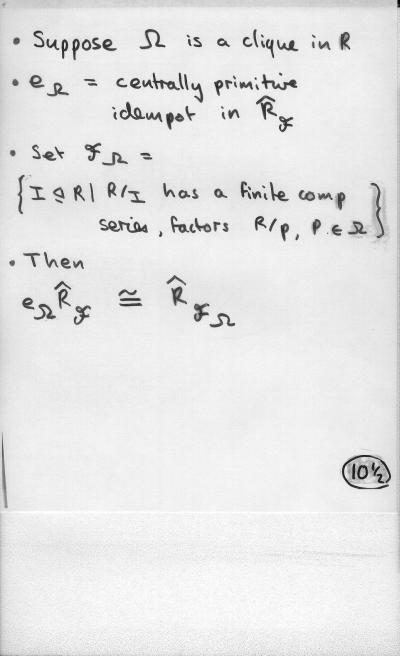 • Suppose Ω is a clique in R
• e_Ω = centrally primitive
idempot in R̂_𝓕
• Set 𝓕_Ω =
{ I ⊴ R | R/I has a finite comp
series, factors R/p, P ∈ Ω }
• Then
e_Ω R̂_𝓕 ≅ R̂_𝓕_Ω
10½